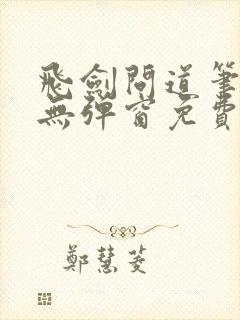 飛劍問道筆
無彈窗免費
鄭慧菱